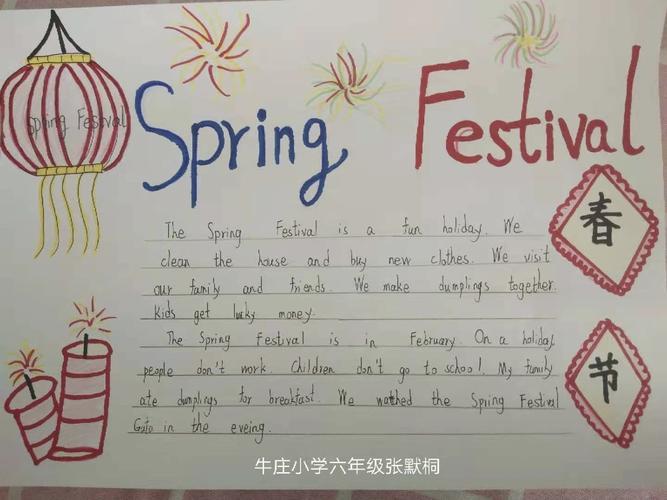 Spring Festival
Spring Festival
春
节
The Spring Festival is a fun holiday. We
clean the house and buy new clothes. We visit
our family and friends. We make dumplings together.
Kids get lucky money.
The Spring Festival is in February. On a holiday,
people don't work. Children don't go to school. My family
ate dumplings for breakfast. We wathed the Spring Festival
Gato in the eveing.
牛庄小学六年级张默桐